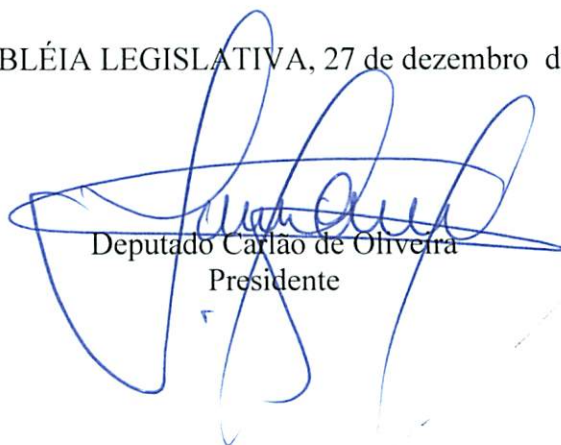 BLÉIA LEGISLATIVA, 27 de dezembro d
Deputado Carlão de Oliveira
Presidente